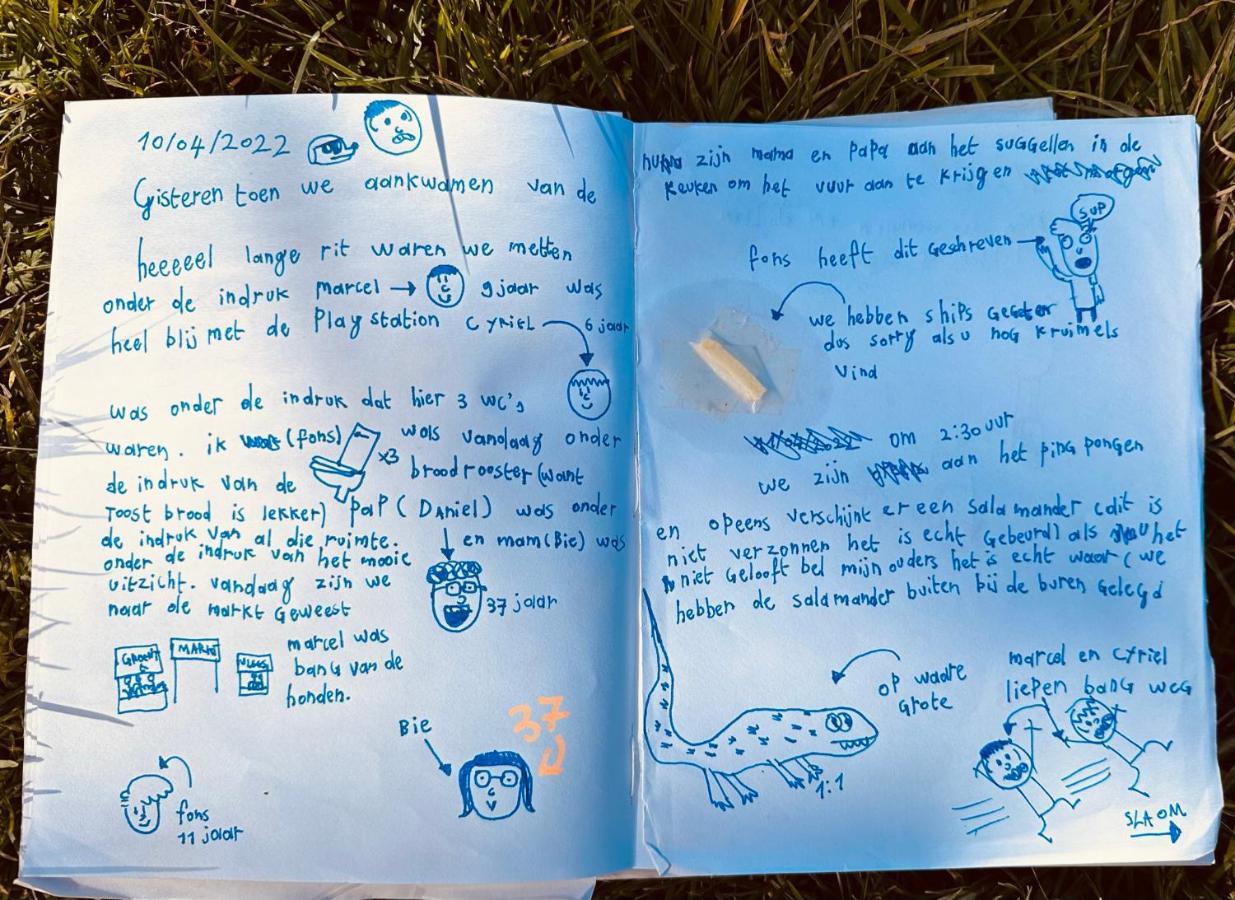 10/04/2022
Gisteren toen we aankwamen van de
heeeeel lange rit waren we metten
onder de indruk marcel → 9 jaar was
heel blij met de Playstation Cyriel 6 jaar
was onder de indruk dat hier 3 wc's
waren. ik (fons) x3 wols vandaag onder
de indruk van de broodrooster (want
Toost brood is lekker) pap (Daniel) was onder
de indruk van al die ruimte. en mam (Bie) was
onder de indruk van het mooie
uitzicht. vandaag zijn we
naar de markt Geweest
37 jaar
GROENT
MARKT
VLEES
marcel was
bang van de
honden.
Bie
37
fons
11 jaar
zijn mama en papa aan het suggellen in de
keuken om het vuur aan te krijgen
SUP
fons heeft dit Geschreven →
we hebben ships Gegeten
dus sorry als u nog kruimels
vind
om 2:30 uur
we zijn aan het ping pongen
en opeens verschijnt er een salamander (dit is
niet verzonnen het is echt Gebeurd) als u het
niet Gelooft bel mijn ouders het is echt waar (we
hebben de salamander buiten bij de buren Gelegd
op waare
Grote
1:1
marcel en Cyriel
liepen bang weg
SLAOM